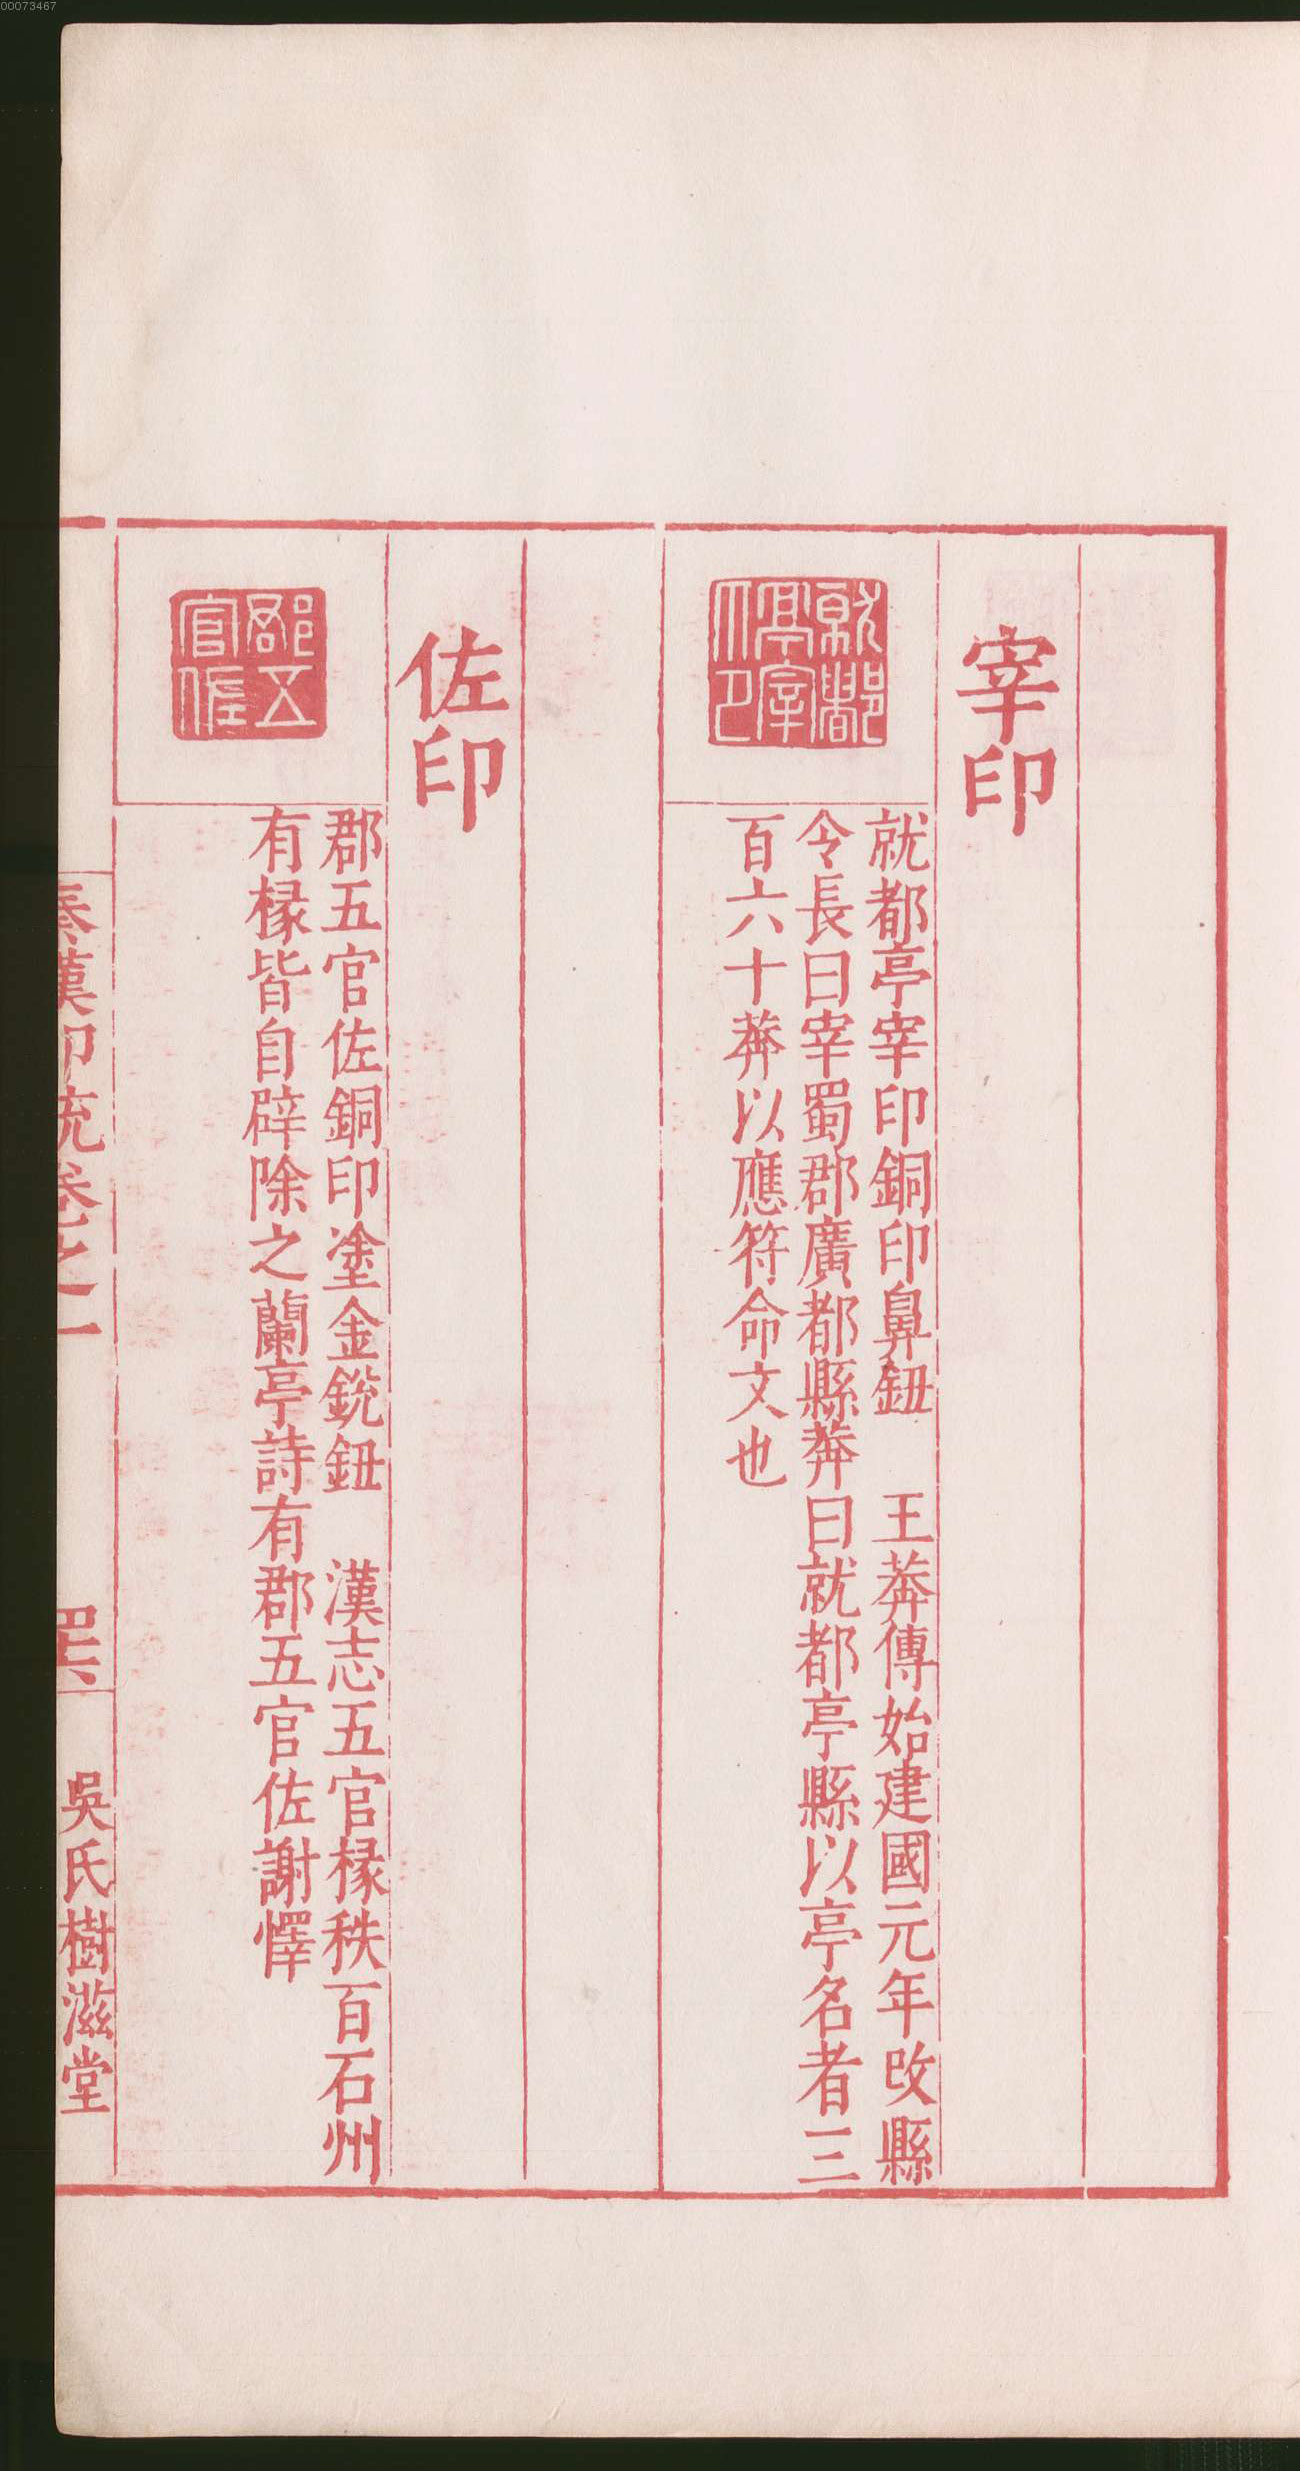 00073467
宰印
就都
亭宰
印
就都亭宰印銅印鼻鈕　王莽傳始建國元年改縣
令長曰宰蜀郡廣都縣莽曰就都亭縣以亭名者三
百六十莽以應符命文也
佐印
郡五
官佐
郡五官佐銅印塗金銳鈕　漢志五官椽秩百石州
有椽皆自辟除之蘭亭詩有郡五官佐謝懌
秦漢印統卷之一
四十六
吳氏樹滋堂